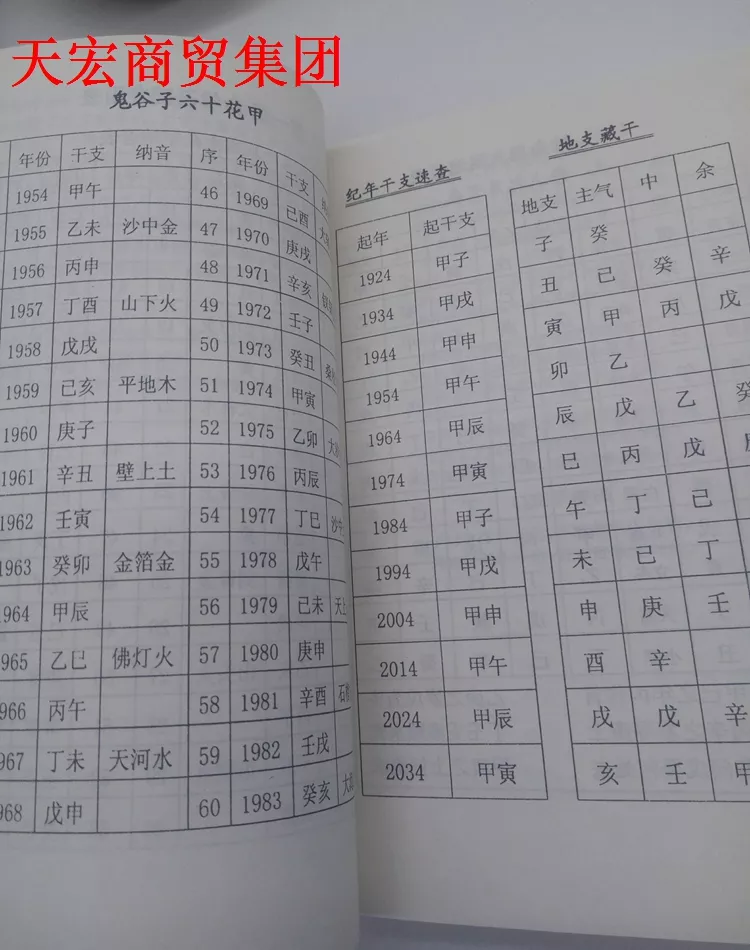 天宏商贸集团
鬼谷子六十花甲
年份 干支 纳音 序 年份 干支
1954 甲午 46 1969 己酉
1955 乙未 沙中金 47 1970 庚戌
1956 丙申 48 1971 辛亥
1957 丁酉 山下火 49 1972 壬子
1958 戊戌 50 1973 癸丑
1959 己亥 平地木 51 1974 甲寅
1960 庚子 52 1975 乙卯
1961 辛丑 壁上土 53 1976 丙辰
1962 壬寅 54 1977 丁巳 沙中
1963 癸卯 金箔金 55 1978 戊午
1964 甲辰 56 1979 己未 天上
965 乙巳 佛灯火 57 1980 庚申
966 丙午 58 1981 辛酉 石
967 丁未 天河水 59 1982 壬戌
968 戊申 60 1983 癸亥 大
纪年干支速查
起年 起干支
1924 甲子
1934 甲戌
1944 甲申
1954 甲午
1964 甲辰
1974 甲寅
1984 甲子
1994 甲戌
2004 甲申
2014 甲午
2024 甲辰
2034 甲寅
地支藏干
地支 主气 中 余
子 癸
丑 己 癸 辛
寅 甲 丙 戊
卯 乙
辰 戊 乙 癸
巳 丙 戊
午 丁 己
未 己 丁
申 庚 壬
酉 辛
戌 戊 辛
亥 壬 甲